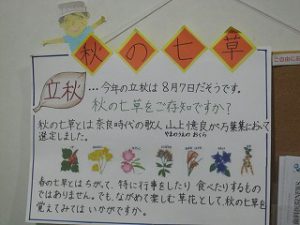 秋の七草
立秋
…今年の立秋は8月7日だそうです。
秋の七草をご存知ですか？
秋の七草とは奈良時代の歌人 山上憶良が万葉集において
やまのうえの おくら
選定しました。
春の七草とはちがって、特に行事をしたり 食べたりするもの
ではありません。でも、ながめて楽しむ草花として、秋の七草を
覚えてみてはいかがですか。